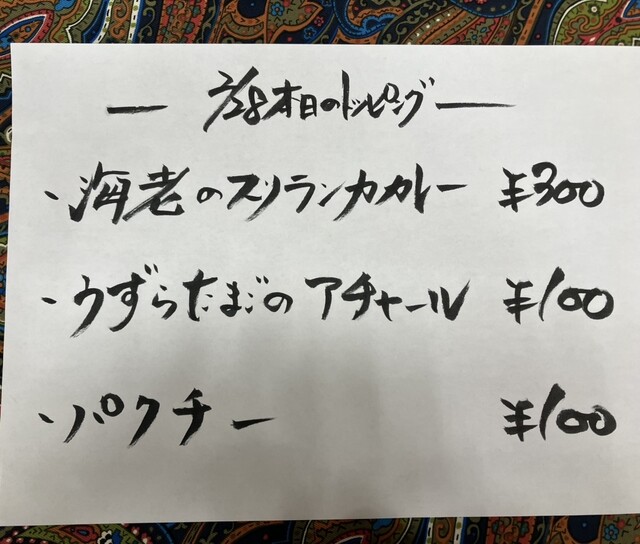 ― 2/28 本日のトッピング ―
・海老のスリランカカレー ¥300
・うずらたまごのアチャール ¥100
・パクチー ¥100